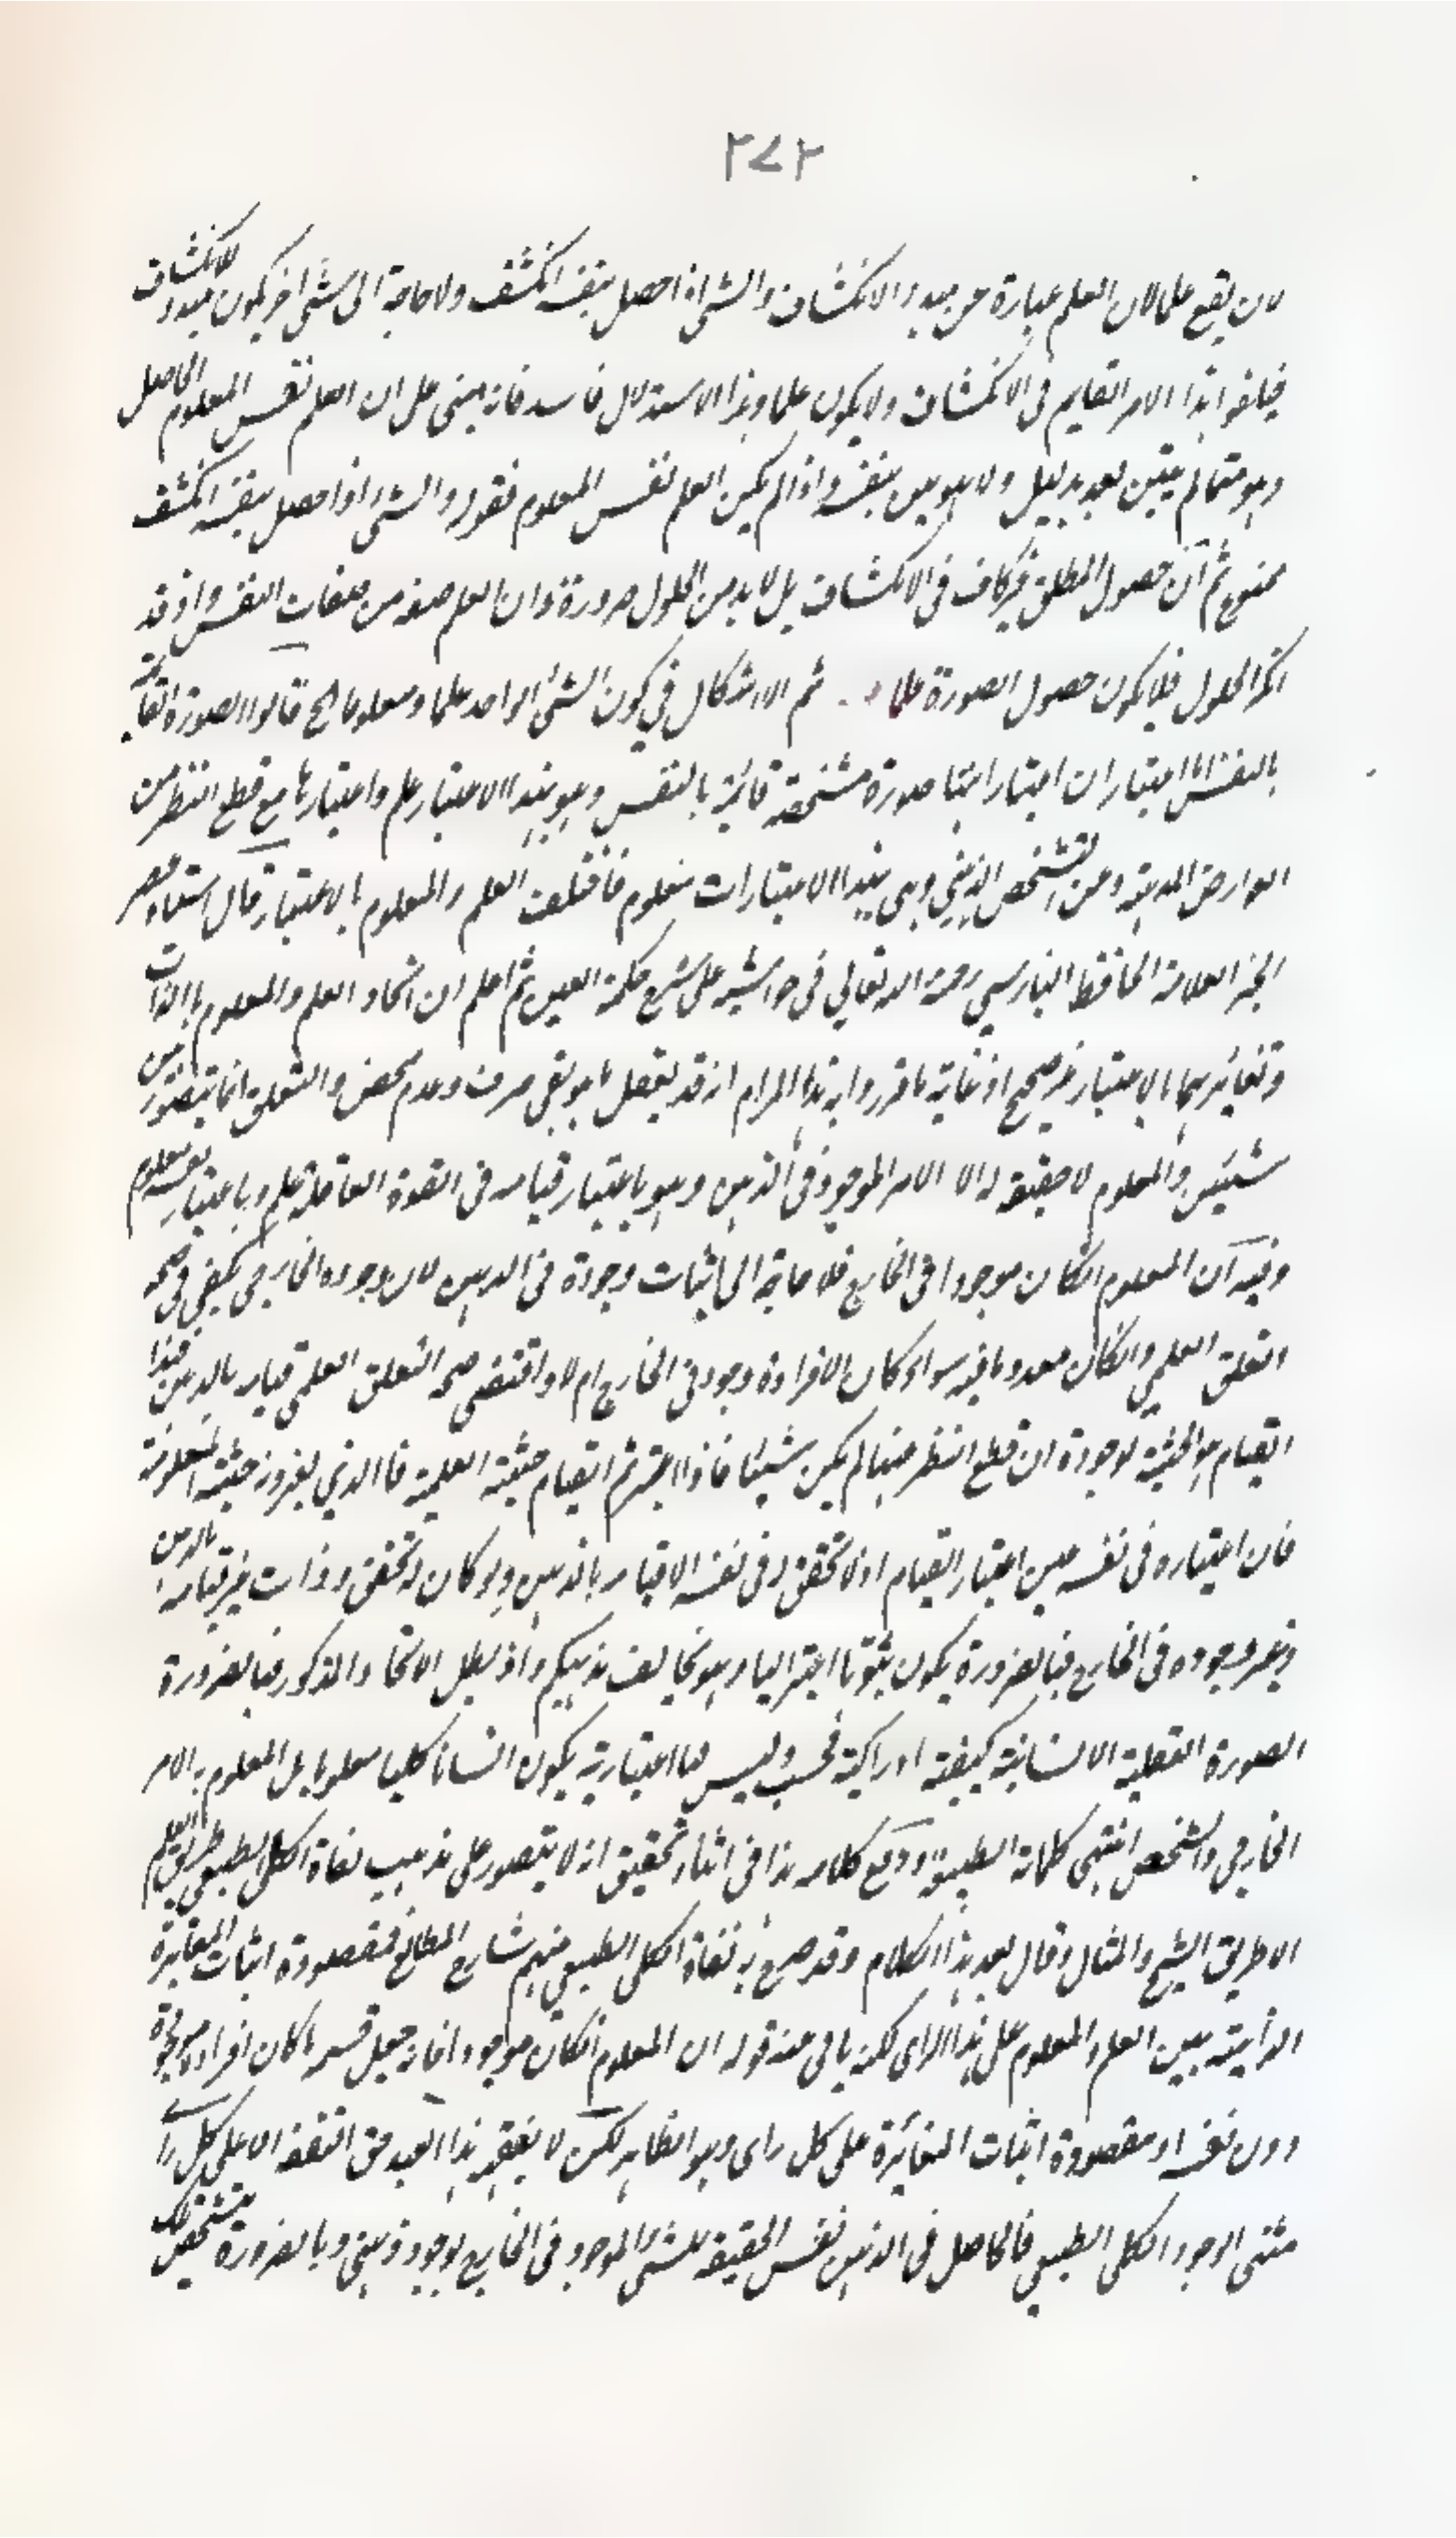 ٢٧٢
لان يقع علما لان العلم عبارة عن مبدء الانكشاف والشئ اذا حصل بنفسه انكشف ولا حاجة الى شئ اخر يكون مبدء للانكشاف
فيلغو هذا الامر القايم فى الانكشاف ولا يكون علما وهذا الاستدلال فاسد فانه مبنى على ان العلم نفس المعلوم الحاصل
وهو مما لم يتبين بعد بدليل ولا هو بين بنفسه واذا لم يكن العلم نفس المعلوم فقوله والشئ اذا حصل بنفسه انكشف
ممنوع ثم ان حصول المطلق غير كاف فى الانكشاف بل لابد من الحلول ضرورة وان العلم صفة من صفات النفس واذ قد
انكر الحلول فلا يكون حصول الصورة علما ثم الاشكال فى كون الشئ الواحد علما ومعلوما الخ قالوا الصورة القائمة
بالنفس لها اعتباران اعتبار انها صورة مشخصة قائمة بالنفس وهو بهذا الاعتبار علم واعتبارها مع قطع النظر من
العوارض الذهنية وعن التشخص الذهنى وهى بهذا الاعتبارات معلوم فاختلف العلم والمعلوم بالاعتبار قال استاد عصر
الحبر العلامة الحافظ البنارسى رحمه الله تعالى فى حواشيه على شرح حكمة العين ثم اعلم ان اتحاد العلم والمعلوم بالذات
وتغائرهما بالاعتبار غير صحيح اذ غاية ما قرروا به هذا المرام انه قد يعقل ما هو نفى صرف وعدم محض والتعلق انما يتصور بين
شيئين والمعلوم لا حقيقة له الا الامر الموجود فى الذهن وهو باعتبار قيامه فى القوة العاقلة علم وباعتبار نفسه معلوم
وفيه ان المعلوم ان كان موجودا فى الخارج فلا حاجة الى اثبات وجوده فى الذهن لان وجوده الخارجى يكفى فى صحة
التعلق العلمى وان كان معدوما فيه سواء كان لافراده وجود فى الخارج ام لا واقتضى صحة التعلق العلمى قيامه بالذهن فهذا
القيام هو الحيثية لوجوده ان قطع النظر عنها لم يكن شيئا فاذا اعتبر ثم القيام حيثية العلمية فما الذى يفرز حيثية المعلومية
فان اعتباره فى نفسه عين اعتبار القيام اذ لا تحقق له فى نفسه الا قيامه بالذهن ولو كان له تحقق وذات غير قيامه بالذهن
وغير وجوده فى الخارج فبالضرورة يكون ثبوتا اعتزاليا وهو يخالف مذهبكم واذ بطل الاتحاد المذكور فبالضرورة
الصورة العقلية الانسانية كيفية ادراكية فحسب وليس لها اعتبارية يكون انسانا كليا معلوما بل المعلوم به الامر
الخارجى والشخص انتهى كلماته الطيبة ووقع كلامه هذا فى اثناء تحقيق انه لا يتصور على مذهب نفاة الكلى الطبيعى طريق العلم
الا طريق الشبح والمثال وقال بعد هذا الكلام وقد صرح به نفاة الكلى الطبيعى منهم شارح المطالع فمقصوده اثبات المغايرة
الذاتية بين العلم والمعلوم على هذا الراى لكنه يابى عنه قوله ان المعلوم ان كان موجودا فانه جعل قسيمه ما كان افراده موجودة
دون نفسه او مقصوده اثبات المغائرة على كل راى وهو الظاهر لكن لا يفقه هذا العبد حق التفقه الا على كل راى
مثبتى الوجود الكلى الطبيعى فالحاصل فى الذهن نفس الحقيقة للشئ الموجود فى الخارج بوجود ذهنى وبالضرورة يتشخص تلك